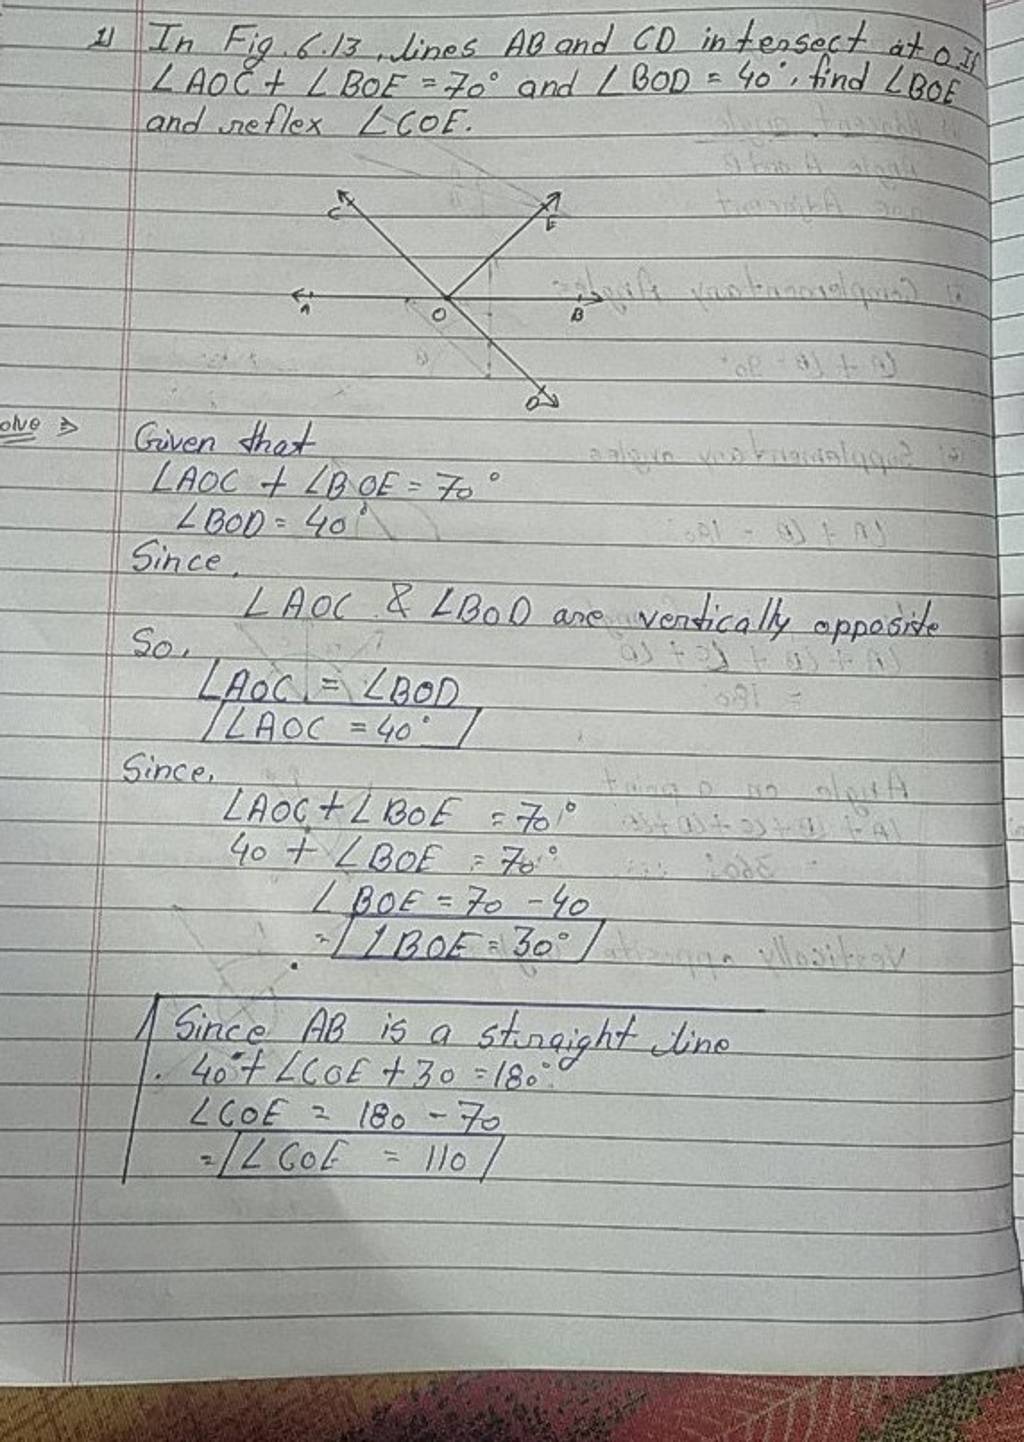 1) In Fig. 6.13, lines AB and CD intersect at O If
∠AOC + ∠BOE = 70° and ∠BOD = 40°, find ∠BOE
and reflex ∠COE.
C
E
A
O
B
D
olve ⇒
Given that
∠AOC + ∠BOE = 70°
∠BOD = 40°
Since,
∠AOC & ∠BOD are vertically opposite
So,
∠AOC = ∠BOD
∠AOC = 40°
Since,
∠AOC + ∠BOE = 70°
40 + ∠BOE = 70°
∠BOE = 70 - 40
= ∠BOE = 30°
Since AB is a straight line
40° + ∠COE + 30 = 180°
∠COE = 180 - 70
= ∠COE = 110